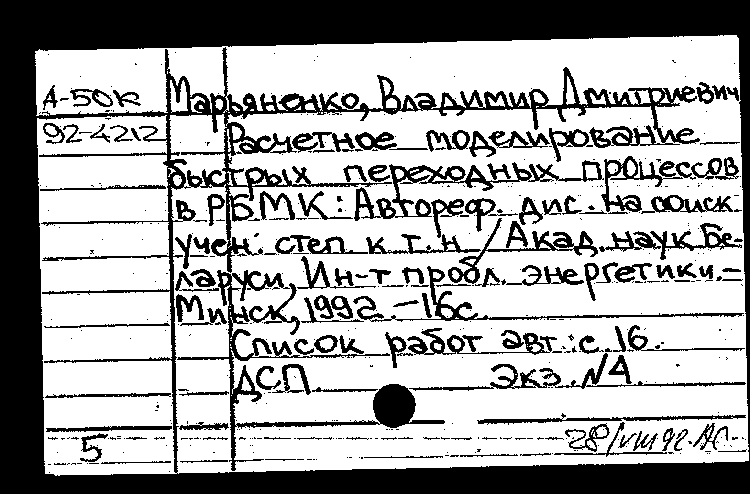 А-50к Марьяненко, Владимир Дмитриевич
92-4212 Расчетное моделирование
быстрых переходных процессов
в РБМК: Автореф. дис. на соиск
учен. степ к т.н / Акад. наук Бе-
ларуси, Ин-т пробл. энергетики.-
Минск, 1992.-16с.
Список работ авт.: с. 16.
ДСП. Экз. №4.
5 28/VIII 92.